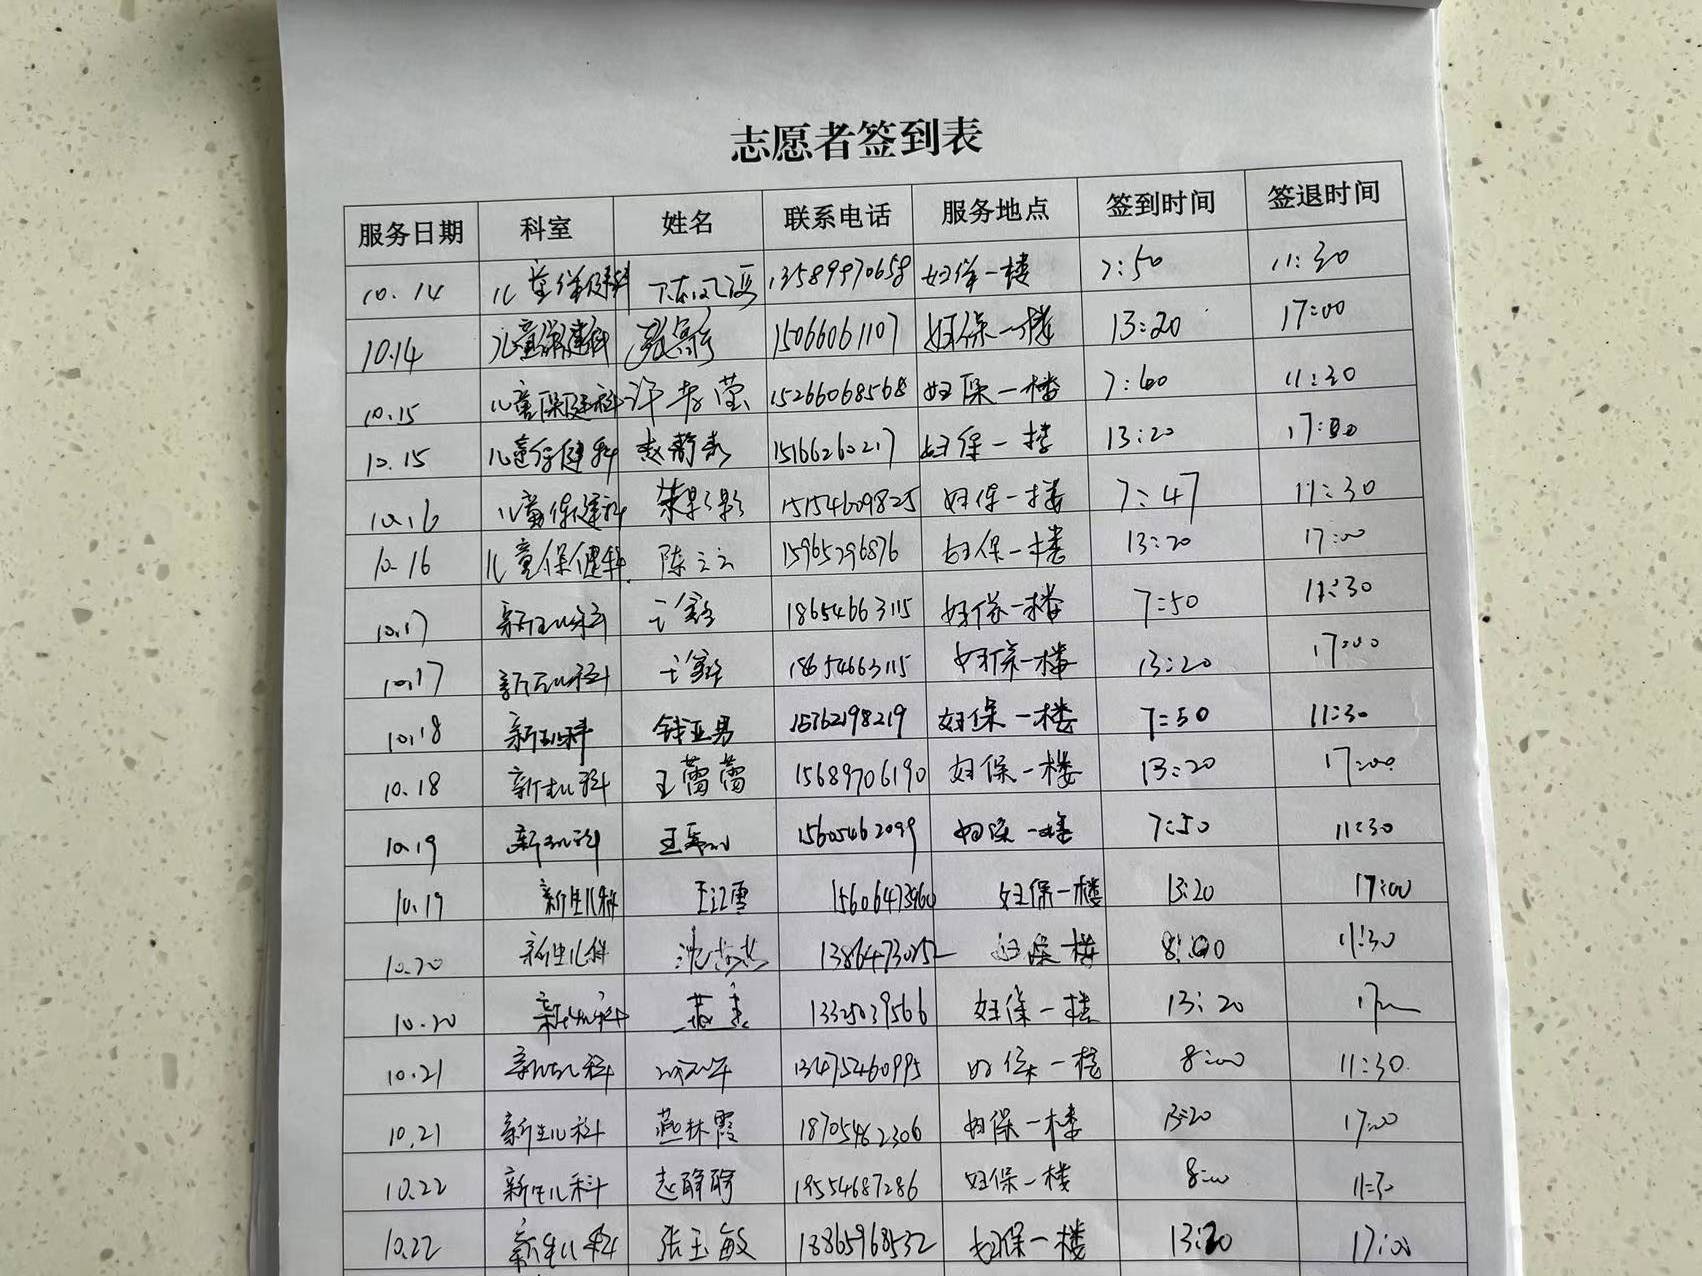 志愿者签到表
服务日期 科室 姓名 联系电话 服务地点 签到时间 签退时间
10.14 儿童保健科 13589970658 妇保一楼 7:50 11:30
10.14 儿童保健科 15066061107 妇保一楼 13:20 17:00
10.15 儿童保健科 15266068568 妇保一楼 11:30
10.15 儿童保健科 15166260217 妇保一楼 13:20 17:00
10.16 儿童保健科 15154609825 妇保一楼 7:47 11:30
10.16 儿童保健科 陈云云 15965296876 妇保一楼 13:20 17:00
10.17 新生儿科 18654663115 妇保一楼 7:50 11:30
10.17 新生儿科 18654663115 妇保一楼 13:20 17:00
10.18 新生儿科 钱亚男 15762198219 妇保一楼 7:50 11:30
10.18 新生儿科 王蕾蕾 15689706190 妇保一楼 13:20 17:00
10.19 新生儿科 15605462099 妇保一楼 7:50 11:30
10.19 新生儿科 王江雪 妇保一楼 13:20 17:00
10.20 新生儿科 妇保一楼 8:00 11:30
10.20 新生儿科 13325039566 妇保一楼 13:20
10.21 新生儿科 13475460995 妇保一楼 8:00 11:30
10.21 新生儿科 燕林霞 18705462306 妇保一楼 13:20 17:00
10.22 新生儿科 19554687286 妇保一楼 8:00 11:30
10.22 新生儿科 张玉敏 18865968532 妇保一楼 13:20 17:00